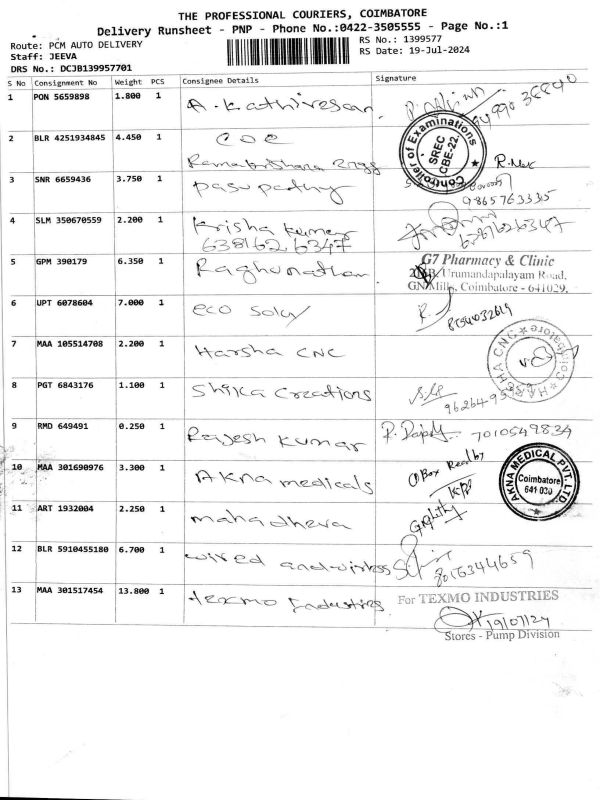 THE PROFESSIONAL COURIERS, COIMBATORE
Delivery Runsheet - PNP - Phone No.:0422-3505555 - Page No.:1
Route: PCM AUTO DELIVERY
RS No.: 1399577
Staff: JEEVA
RS Date: 19-Jul-2024
DRS No.: DCJB139957701
S No Consignment No Weight PCS Consignee Details Signature
1 PON 5659898 1.800 1 A. Kathiresan
2 BLR 4251934845 4.450 1 COE
Controller of Examinations
SREC
CBE-22
3 SNR 6659436 3.750 1 pasupathy
9865763335
4 SLM 350670559 2.200 1 Krisha kumar
6381626347 6381626347
5 GPM 390179 6.350 1 Raghunathan
G7 Pharmacy & Clinic
Urumandapalayam Road,
GN Mills, Coimbatore - 641029.
6 UPT 6078604 7.000 1 eco solar
7 MAA 105514708 2.200 1 Harsha CNC
HARSHA CNC ★ Coimbatore ★
8 PGT 6843176 1.100 1 Shika Creations
9 RMD 649491 0.250 1 Rajesh kumar 7010549834
10 MAA 301690976 3.300 1 Akna medicals
AKNA MEDICAL PVT. LTD
Coimbatore
11 ART 1932004 2.250 1 mahadheva
12 BLR 5910455180 6.700 1 wired and
8056344659
13 MAA 301517454 13.800 1 texmo Industries
For TEXMO INDUSTRIES
19/07/24
Stores - Pump Division